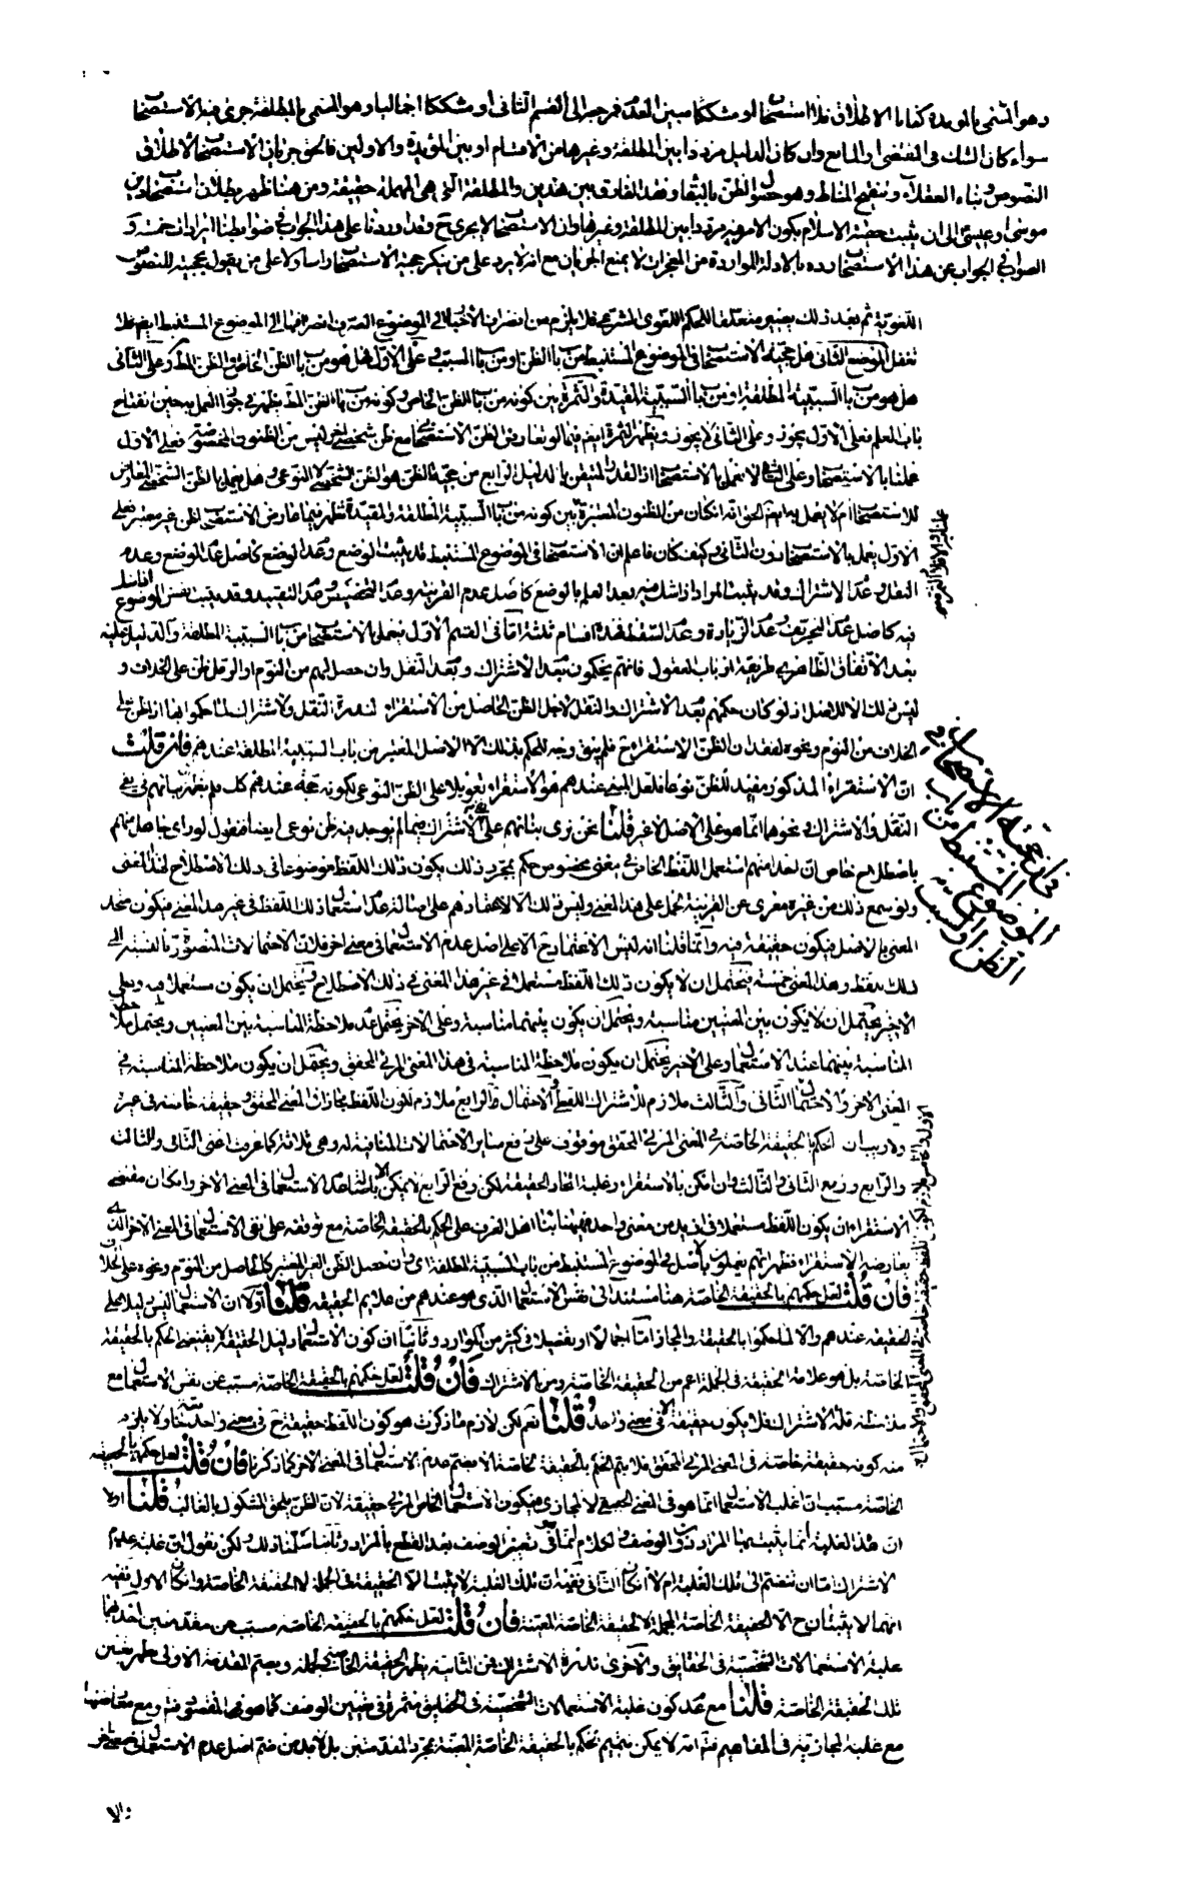 وهو المسمى بالمؤبدة كفانا الاطلاق فلا استصحاب او مشككا مبين العدم فمرجعه الى القسم الثاني او مشككا اجماليا وهو المسمى بالمطلقة جرى فيه الاستصحاب
سواء كان الشك في المقتضي او المانع وان كان الدليل مرددا بين المطلقة وغيرها من الاقسام او بين المؤبدة والاولين فالحق جريان الاستصحاب لاطلاق
النصوص وبناء العقلاء وتنقيح المناط وهو حصول الظن بالبقاء وفقد الفارق بين هذين والمطلقة التي هي المهملة حقيقة ومن هنا ظهر بطلان استصحاب دين
موسى او عيسى الى ان يثبت حقية الاسلام بكون الامر فيه مرددا بين المطلقة وغيرها وان الاستصحاب لا يجري ح وقد اوردنا على هذا الجواب في ضوابطنا ايرادات خمسة و
الصواب في الجواب عن هذا الاستصحاب رده بالادلة الواردة من المعجزات لا بمنع الجريان مع انه لا يرد على من ينكر حجية الاستصحاب راسا ولا على من يقول بحجيته للنصوص
اللغوية ثم بعد ذلك يصير متعلقا للحكم اللغوي الشرعي فلا يلزم من انصراف الاخبار الى الموضوع الصرف انصرافها الى الموضوع المستنبط ايضا فلا
تغفل الموضع الثاني هل حجية الاستصحاب في الموضوع المستنبط من باب الظن او من باب السبب وعلى الاول هل هو من باب الظن الخاص او الظن المط وعلى الثاني
هل هو من باب السببية المطلقة او من باب السببية المقيدة والثمرة بين كونه من باب الظن الخاص وكونه من باب الظن المط يظهر في جواز العمل به حين انفتاح
باب العلم فعلى الاول يجوز وعلى الثاني لا يجوز ويظهر الثمرة ايضا فيما لو تعارض الظن الاستصحابي مع ظن شخصي اخر ليس من الظنون المخصوصة فعلى الاول
عملنا بالاستصحاب وعلى الثاني لا نعمل بالاستصحاب اذ القدر المتيقن بالدليل الرابع من حجية الظن هو الظن الشخصي لا النوعي وهل يعمل بالظن الشخصي المعارض
للاستصحاب ام لا يعمل به ايضا الحق انه ان كان من الظنون المعتبرة بين كونه من باب السببية المطلقة والمقيدة تظهر فيما عارض الاستصحاب ظن غير معتبر فعلى
الاول يعمل بالاستصحاب دون الثاني وكيف كان فاعلم ان الاستصحاب في الموضوع المستنبط قد يثبت الوضع وعدم الوضع كاصل عدم الوضع وعدم
النقل وعدم الاشتراك وقد يثبت المراد اذا شك فيه بعد العلم بالوضع كاصل عدم القرينة وعدم التخصيص وعدم التقييد وقد يثبت نفس الموضوع
فيه كاصل عدم التحريف وعدم الزيادة وعدم السقط فهذه اقسام ثلثة اما في القسم الاول فيعمل بالاستصحاب من باب السببية المطلقة والدليل عليه
بعد الاتفاق الظاهر في طريقة ارباب العقول فانهم يحكمون بعدم الاشتراك وبعدم النقل وان حصل لهم من النوم او الرمل ظن على الخلاف و
ليس ذلك الا للاصل اذ لو كان حكمهم بعدم الاشتراك والنقل لاجل الظن الحاصل من الاستقراء لندرة النقل والاشتراك لما حكموا بها اذا ظن على
الخلاف من النوم ونحوه لفقدان الظن الاستقرائي ح فلم يبق وجه للحكم بذلك الا الاصل المعتبر من باب السببية المطلقة عندهم فان قلت
ان الاستقراء المذكور مفيد للظن نوعا فلعل المبنى عندهم هو الاستقراء تعويلا على الظن النوعي لكونه حجة عندهم كلا فلم يظهر بنائهم في نفي
النقل والاشتراك ونحوهما انما هو على الاصل لا غير قلنا نحن نرى بنائهم على الاشتراك فيما لم يوجد فيه ظن نوعي ايضا فنقول لو راى جاهل منهم
باصطلاح خاص ان احدا منهم استعمل اللفظ الخاص في معنى مخصوص حكم بمجرد ذلك بكون ذلك اللفظ موضوعا في ذلك الاصطلاح لهذا المعنى
ولو سمع ذلك من غيره معرى عن القرينة يحمل على هذا المعنى وليس ذلك الا لاعتمادهم على اصالة عدم استعمال ذلك اللفظ في غير هذا المعنى فيكون متحد
المعنى بالاصل فيكون حقيقة فيه وانما قلنا انه ليس الاعتماد ح الا على اصل عدم الاستعمال في معنى اخر فلان الاحتمالات المتصورة بالنسبة الى
ذلك اللفظ وهذا المعنى خمسة فيحتمل ان لا يكون ذلك اللفظ مستعملا في غير هذا المعنى في ذلك الاصطلاح ويحتمل ان يكون مستعملا فيه وعلى
الاخير يحتمل ان لا يكون بين المعنيين مناسبة ويحتمل ان يكون بينهما مناسبة وعلى الاخر يحتمل عدم ملاحظة المناسبة بين المعنيين ويحتمل ملاحظة
المناسبة بينهما عند الاستعمال وعلى الاخير يحتمل ان يكون ملاحظة المناسبة في هذا المعنى المرئي المحقق ويحتمل ان يكون ملاحظة المناسبة في
المعنى الاخر والاحتمال الثاني والثالث ملازم للاشتراك اللفظي والاحتمال الرابع ملازم لكون اللفظ مجازا في المعنى المحقق وحقيقة خاصة في غيره
ولا ريب ان الحكم بالحقيقة الخاصة في المعنى المرئي المحقق موقوف على رفع ساير الاحتمالات المنافية له وهي ثلاثة كما عرفت اعني الثاني والثالث
والرابع ورفع الثاني والثالث وان امكن بالاستقراء وغلبة اتحاد الحقيقة لكن رفع الرابع لا يمكن الا باصالة عدم الاستعمال في المعنى الاخر وان كان مقتضى
الاستقراء ان يكون اللفظ مستعملا في ازيد من معنى واحد فههنا بناء اهل العرف على الحكم بالحقيقة الخاصة مع توقفه على نفي الاستعمال في المعنى الاخر الذي
يعارضه الاستقراء فظهر انهم يعملون باصل في الموضوع المستنبط من باب السببية المطلقة اي وان حصل الظن الغير المعتبر كالحاصل من النوم ونحوه على خلاف
فان قلت لعل حكمهم بالحقيقة الخاصة هنا مستند الى نفس الاستعمال الذي هو عندهم من علايم الحقيقة قلنا اولا ان الاستعمال ليس دليلا على
الحقيقة عندهم والا لما حكموا بالحقيقة والمجاز اما اجمالا او تفصيلا في كثير من الموارد وثانيا ان كون الاستعمال دليل الحقيقة لا يقتضي الحكم بالحقيقة
الخاصة بل هو علامة الحقيقة في الجملة اعم من الحقيقة الخاصة ومن الاشتراك فان قلت لعل حكمهم بالحقيقة الخاصة مسبب عن نفس الاستعمال مع
ملاحظة قلة الاشتراك فلا يكون حقيقة الا في معنى واحد قلنا نعم لكن لازم ما ذكرت هو كون اللفظ حقيقة ح في معنى واحد منهما ولا يلزم
منه كونه حقيقة خاصة في المعنى المرئي المحقق فلا يتم الحكم بالحقيقة الخاصة الا بضم عدم الاستعمال في المعنى الاخر كما ذكرنا فان قلت لعل حكمهم بالحقيقة
الخاصة مسبب ان اغلب الاستعمال انما هو في المعنى الحقيقي لا المجازي فيكون الاستعمال الخاص المرئي حقيقة لان الظن يلحق المشكوك بالغالب قلنا اولا
ان هذه الغلبة انما يثبت بها المراد دون الوصف والكلام انما في تعيين الوصف بعد القطع بالمراد وثانيا سلمنا ذلك ولكن نقول ان غلبة عدم
الاشتراك اما ان تنضم الى تلك الغلبة ام لا ان كان الثاني ففيه ان تلك الغلبة لا يثبت الا الحقيقة في الجملة لا الحقيقة الخاصة وان كان الاول ففيه
انهما لا يثبتان ح الا الحقيقة الخاصة المجملة لا الحقيقة الخاصة المعينة فان قلت لعل حكمهم بالحقيقة الخاصة مسبب عن مقدمتين احدهما
غلبة الاستعمالات الشخصية في الحقايق والاخرى ندرة الاشتراك فمن الثانية يظهر الحقيقة الخاصة في الجملة وبضم المقدمة الاولى يظهر تعيين
تلك الحقيقة الخاصة قلنا مع عدم كون غلبة الاستعمالات الشخصية في الحقايق مثمرة في تعيين الوصف كما هو في المقصود فتم ومع معارضتها
مع غلبة المجازية في المفاهيم فتم انه لا يمكن منهم الحكم بالحقيقة الخاصة المعينة بمجرد المقدمتين بل لا بد من ضم اصل عدم الاستعمال في معنى اخر
والا
في ان حجية الاستصحاب في
الموضوع المستنبط من باب
الظن او السبب